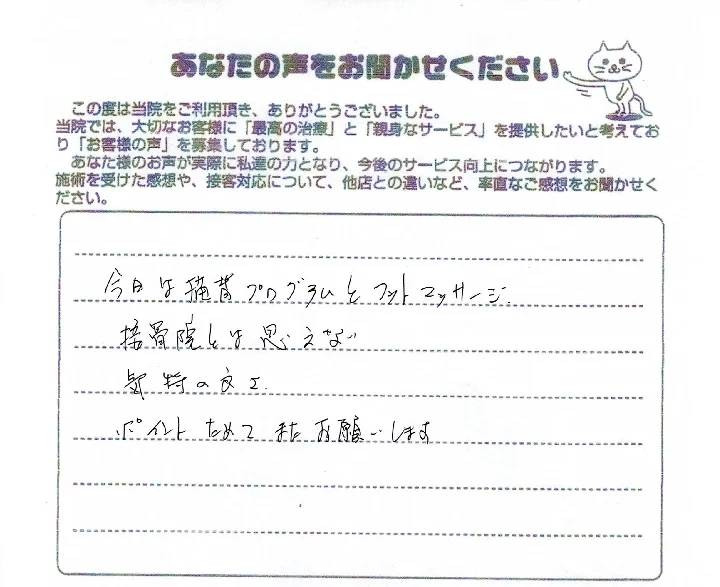 あなたの声をお聞かせください
この度は当院をご利用頂き、ありがとうございました。
当院では、大切なお客様に「最高の治療」と「親身なサービス」を提供したいと考えてお
り「お客様の声」を募集しております。
あなた様のお声が実際に私達の力となり、今後のサービス向上につながります。
施術を受けた感想や、接客対応について、他店との違いなど、率直なご感想をお聞かせく
ださい。
今日は猫背プログラムとフットマッサージ.
接骨院とは思えない
気持の良さ.
ポイントためてまたお願いします